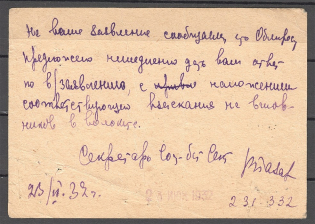 На ваше заявление сообщаем, что Облпрос
предложено немедленно дать вам ответ
по В/заявлению, с наложением
соответствующего взыскания на винов-
ников в волоките.
Секретарь
23/VI.32 г.
231-332